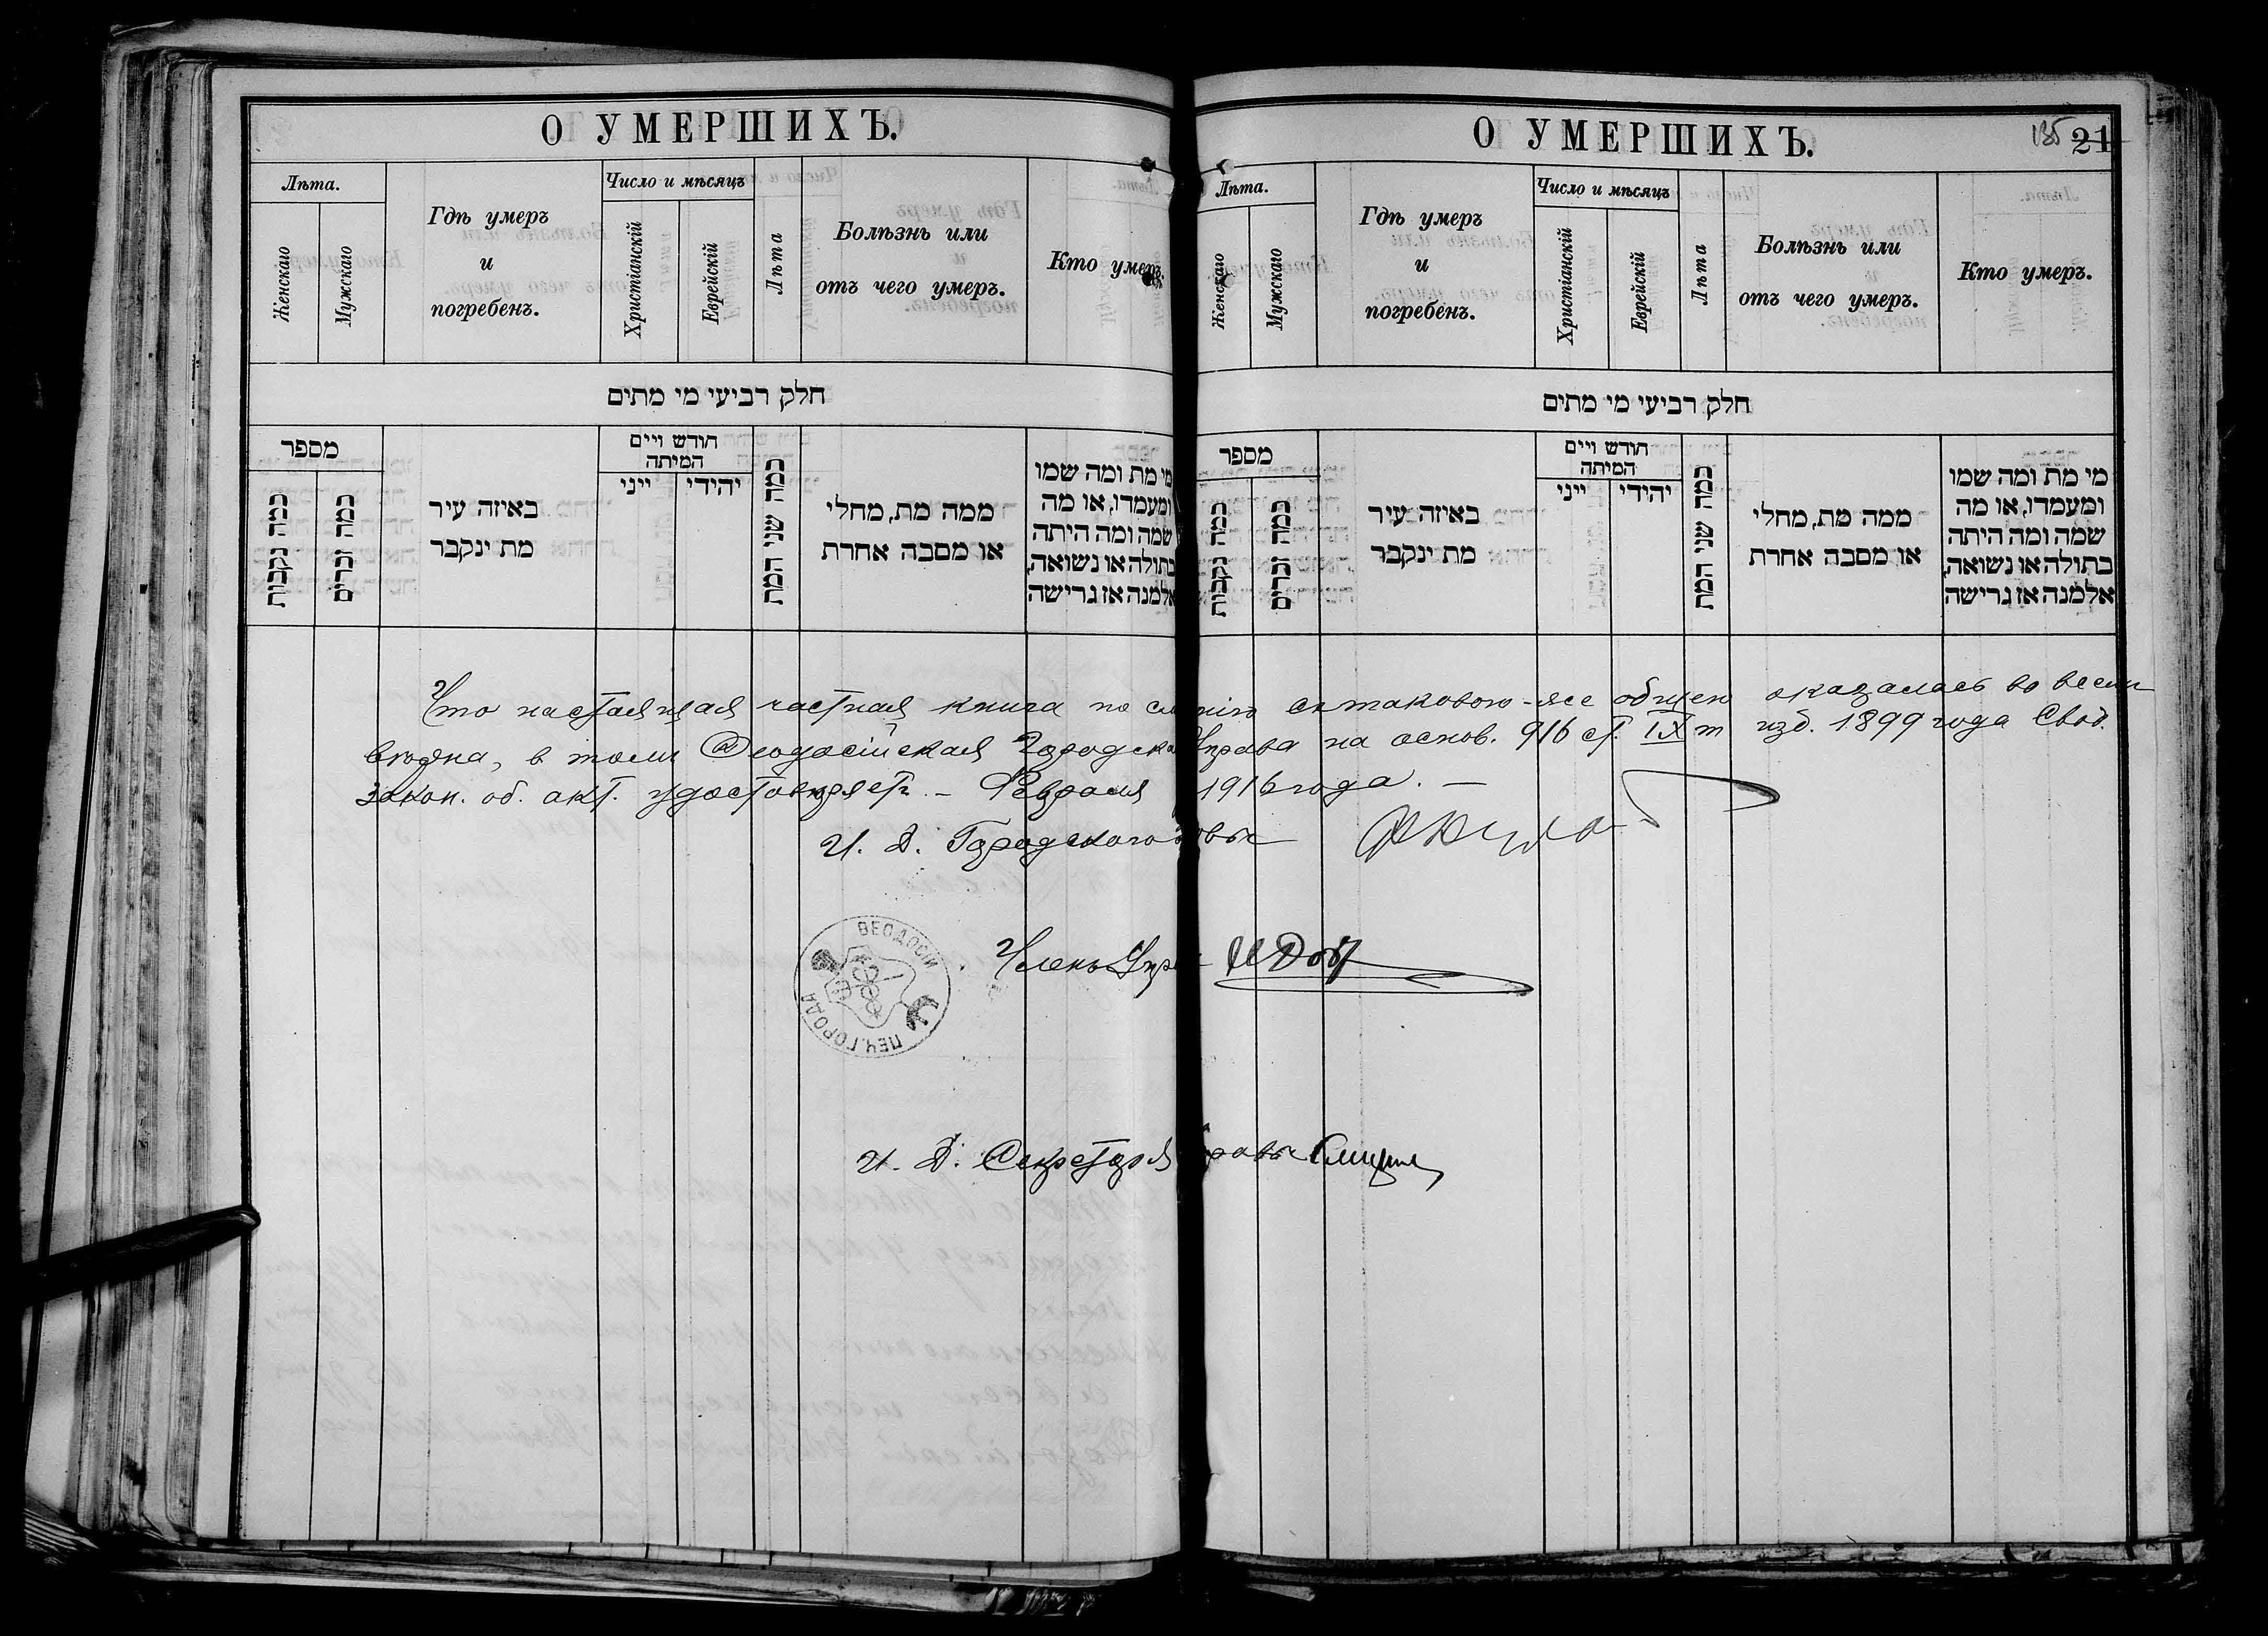 О УМЕРШИХЪ.
Лѣта.
Женскаго
Мужскаго
Гдѣ умеръ
и
погребенъ.
Число и мѣсяцъ
Христіанскій
Еврейскій
Лѣта
Болѣзнь или
отъ чего умеръ.
Кто умеръ.
חלק רביעי מי מתים
מספר
כמה נקבות
כמה זכרים
באיזה עיר
מת ינקבר
חודש ויים
המיתה
ייני
יהודי
כמה שני המת
ממה מת, מחלי
או מסבה אחרת
מי מת ומה שמו
ומעמדו, או מה
שמה ומה היתה
בתולה או נשואה,
אלמנה אז גרישה
О УМЕРШИХЪ.
135 21
Лѣта.
Женскаго
Мужскаго
Гдѣ умеръ
и
погребенъ.
Число и мѣсяцъ
Христіанскій
Еврейскій
Лѣта
Болѣзнь или
отъ чего умеръ.
Кто умеръ.
חלק רביעי מי מתים
מספר
כמה נקבות
כמה זכרים
באיזה עיר
מת ינקבר
חודש ויים
המיתה
ייני
יהודי
כמה שני המת
ממה מת, מחלי
או מסבה אחרת
מי מת ומה שמו
ומעמדו, או מה
שמה ומה היתה
בתולה או נשואה,
אלמנה אז גרישה
Что настоящая частная книга по с таковою-же общею оказалась во всемъ
вѣрна, в томъ Ѳеодосійская Городская Управа на основ. 916 ст. IX т изд. 1899 года Свод.
закон. об. акт. удостовѣряетъ. – Февраля 1916 года. –
И. д. Городского
Членъ Упр
ѲЕОДОСІЙ
ПЕЧ. ГОРОДА
И. д. Секретаря